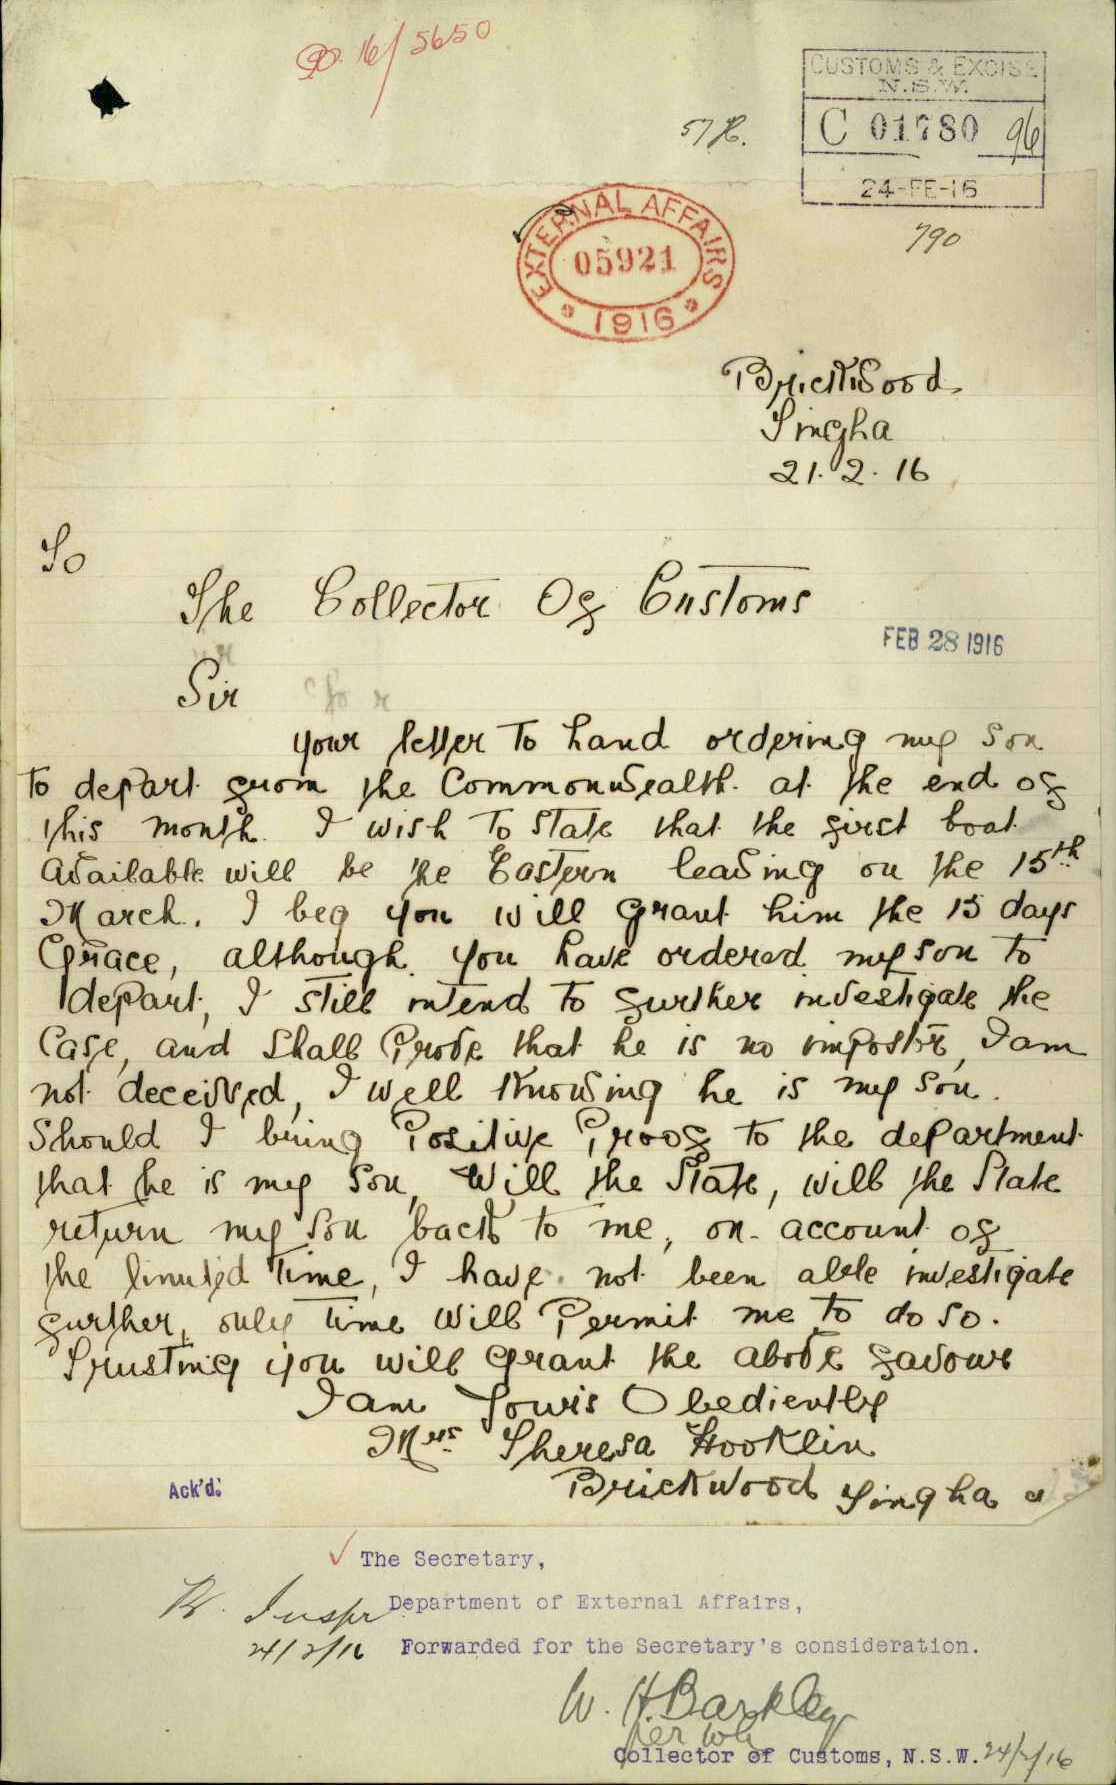 16/5650
CUSTOMS & EXCISE
N.S.W.
57
C 01780 96
24-FE-16
790
EXTERNAL AFFAIRS
05921
1916
Brickwood
Tingha
21.2.16
To
The Collector Of Customs
FEB 28 1916
Sir
your letter to hand ordering my son
to depart from the Commonwealth at the end of
this month. I wish to state that the first boat
available will be the Eastern leaving on the 15th
March. I beg you will grant him the 15 days
Grace, although you have ordered my son to
depart, I still intend to further investigate the
Case, and shall Prove that he is no impostor, I am
not deceived, I well knowing he is my son.
Should I bring Positive Proof to the department
that he is my son, Will the State, will the State
return my son back to me, on account of
the limited Time, I have not been able investigate
further, only time will Permit me to do so.
Trusting you will grant the above favour
I am Yours Obediently
Mrs Theresa Hooklin
Brickwood Tingha
Ack'd:
The Secretary,
Department of External Affairs,
Inspr
24/2/16 Forwarded for the Secretary's consideration.
W. H. Barkley
per
Collector of Customs, N.S.W. 24/2/16